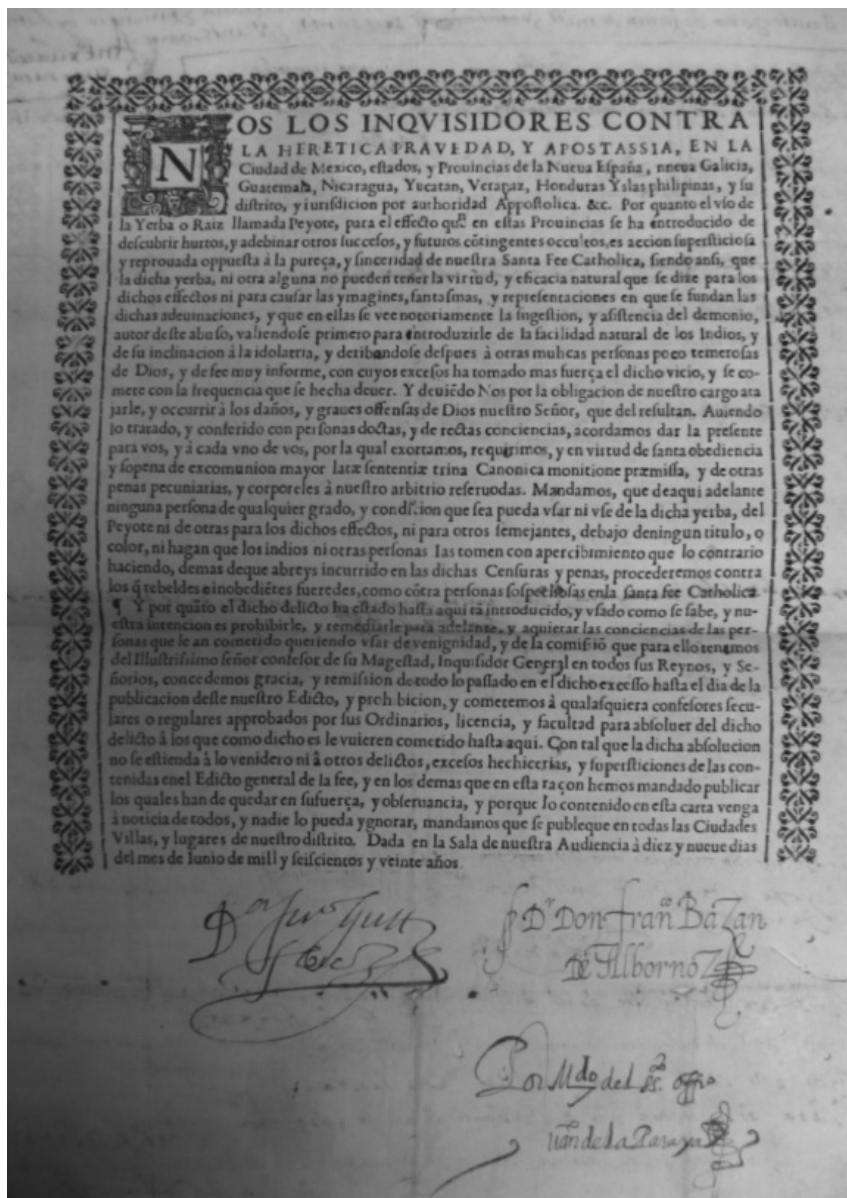 NOS LOS INQVISIDORES CONTRA
LA HERETICA PRAVEDAD, Y APOSTASSIA, EN LA
Ciudad de Mexico, estados, y Prouincias de la Nueua España, nneua Galicia,
Guatemala, Nicaragua, Yucatan, Verapaz, Honduras Yslas philipinas, y su
distrito, y iurisdicion por authoridad Appostolica. &c. Por quanto el vso de
la Yerba o Raiz llamada Peyote, para el effecto que en estas Prouincias se ha introducido de
descubrir hurtos, y adebinar otros successos, y futuros cõtingentes occultos, es accion supersticiosa
y reprouada oppuesta à la pureça, y sinceridad de nuestra Santa Fee Catholica, siendo ansi, que
la dicha yerba, ni otra alguna no pueden tener la virtud, y eficacia natural que se dize para los
dichos effectos ni para causar las ymagines, fantasmas, y representaciones en que se fundan las
dichas adeuinaciones, y que en ellas se vee notoriamente la sugestion, y asistencia del demonio,
autor deste abuso, valiendose primero para introduzirle de la facilidad natural de los Indios, y
de su inclinacion à la idolatria, y deribandose despues à otras muhcas personas poco temerosas
de Dios, y de fee muy informe, con cuyos excesos ha tomado mas fuerça el dicho vicio, y se co-
mete con la frequencia que se hecha deuer. Y deuiẽdo Nos por la obligacion de nuestro cargo ata
jarle, y occurrir à los daños, y graues offensas de Dios nuestro Señor, que del resultan. Auiendo
lo tratado, y conferido con personas doctas, y de rectas conciencias, acordamos dar la presente
para vos, y à cada vno de vos, por la qual exortamos, requirimos, y en virtud de santa obediencia
y sopena de excomunion mayor latæ sententiæ trina Canonica monitione præmissa, y de otras
penas pecuniarias, y corporeles à nuestro arbitrio reseruodas. Mandamos, que deaqui adelante
ninguna persona de qualquier grado, y condicion que sea pueda vsar ni vse de la dicha yerba, del
Peyote ni de otras para los dichos effectos, ni para otros semejantes, debajo deningun titulo, o
color, ni hagan que los indios ni otras personas las tomen con apercibimiento que lo contrario
haciendo, demas deque abreys incurrido en las dichas Censuras y penas, procederemos contra
los q̃ rebeldes e inobediẽtes fueredes, como cõtra personas sospechosas enla santa fee Catholica.
¶ Y por quãto el dicho delicto ha estado hasta aqui tã introducido, y vsado como se sabe, y nu-
estra intencion es prohibirle, y remediarle para adelante, y aquietar las conciencias de las per-
sonas que le an cometido queriendo vsar de venignidad, y de la comisiõ que para ello tenemos
del Illustrissimo señor confesor de su Magestad, Inquisidor General en todos sus Reynos, y Se-
ñorios, concedemos gracia, y remission de todo lo passado en el dicho excesso hasta el dia de la
publicacion deste nuestro Edicto, y proh bicion, y cometemos à qualasquiera confesores secu-
lares o regulares approbados por sus Ordinarios, licencia, y facultad para absoluer del dicho
delicto à los que como dicho es le vuieren cometido hasta aqui. Con tal que la dicha absolucion
no se estienda à lo venidero ni à otros delictos, excesos hechicerias, y supersticiones de las con-
tenidas enel Edicto general de la fee, y en los demas que en esta raçon hemos mandado publicar
los quales han de quedar en sufuerça, y obseruancia, y porque lo contenido en esta carta venga
à noticia de todos, y nadie lo pueda ygnorar, mandamos que se publeque en todas las Ciudades
Villas, y lugares de nuestro distrito. Dada en la Sala de nuestra Audiencia à diez y nueue dias
del mes de Iunio de mill y seiscientos y veinte años
Dr Don Franco Bazan
de Albornoz
Por Mdo del sto offo